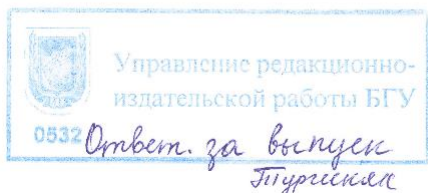 Управление редакционно-
издательской работы БГУ
0532 Ответ. за выпуск